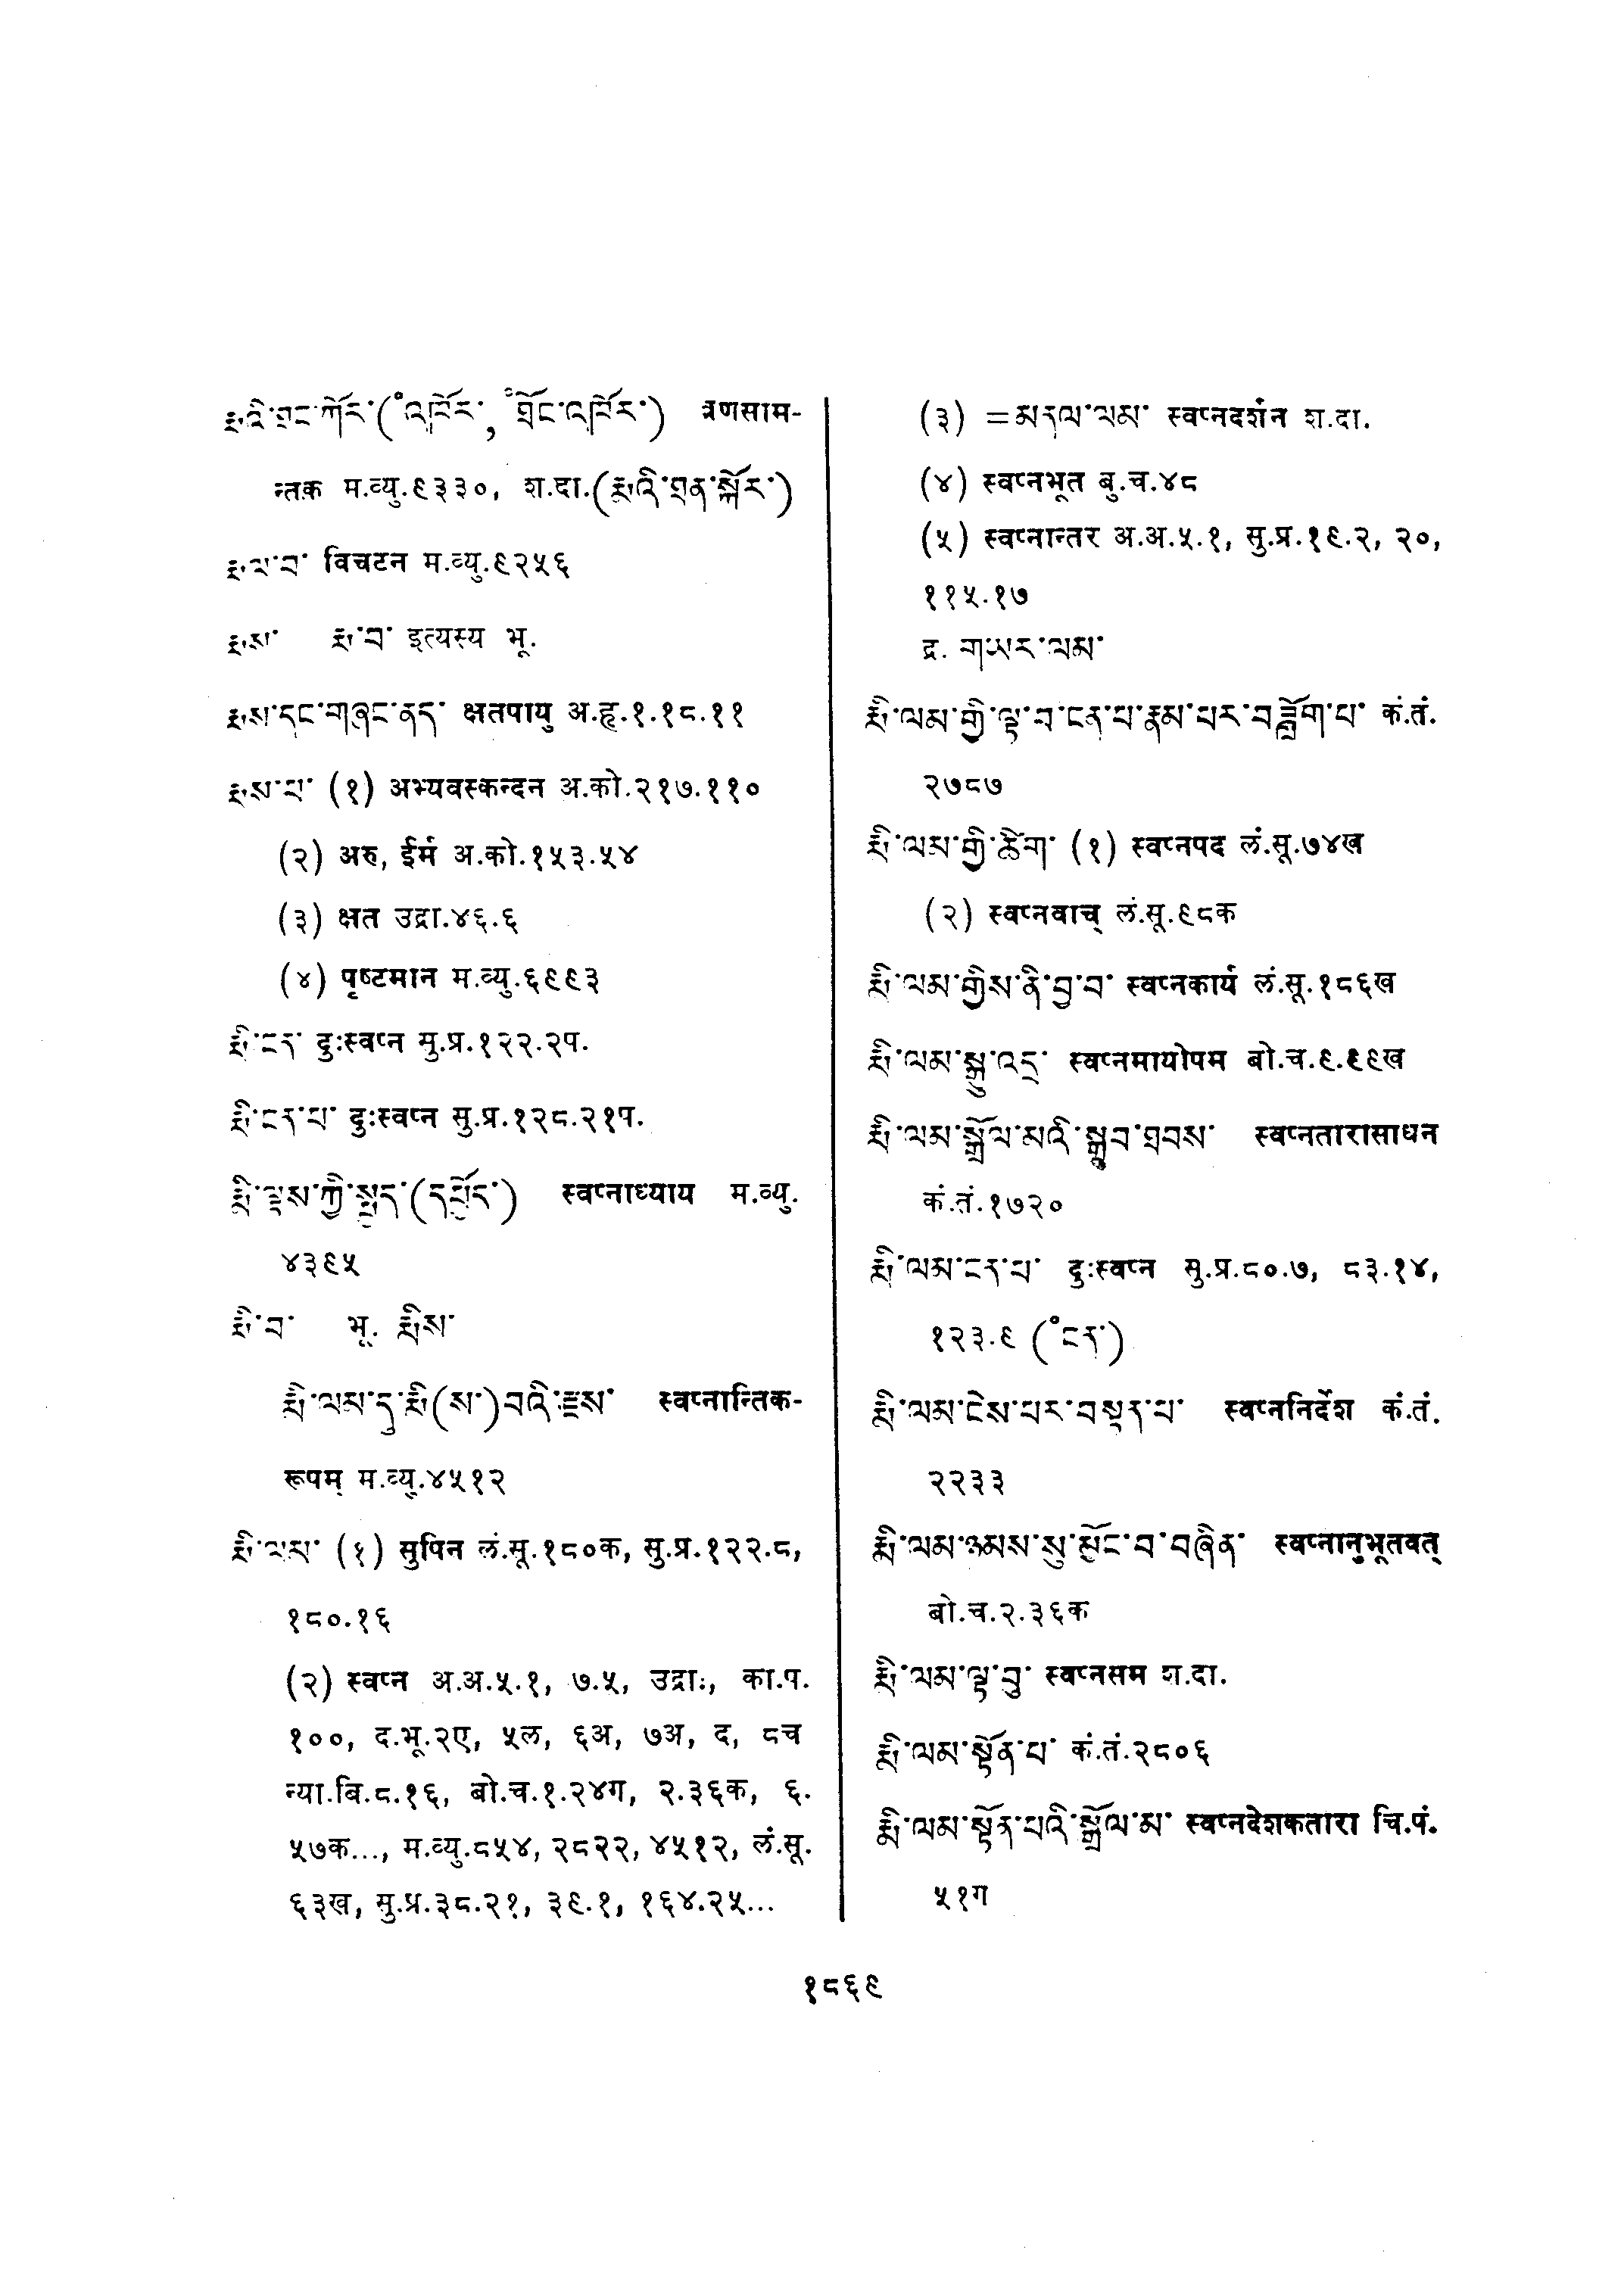 རྨའི་གྲང་ཀོར་(॰འི་ཁོར་, ॰གྲོང་འཁོར་) व्रणसाम-
न्तक म.व्यु.९३३०, श.दा.(རྨའི་གྲན་སྐོར་)
རྨ་ལ་བ་ विचटन म.व्यु.९२५६
རྨས་ རྨ་བ་ इत्यस्य भू.
རྨས་དང་གཞང་ནད་ क्षतपायु अ.हृ.१.१८.११
རྨས་པ་ (१) अभ्यवस्कन्दन अ.को.२१७.११०
(२) अरु, ईर्म अ.को.१५३.५४
(३) क्षत उद्रा.४६.६
(४) पृष्टमान म.व्यु.६९९३
རྨི་ངན་ दुःस्वप्न सु.प्र.१२२.२प.
རྨི་ངན་པ་ दुःस्वप्न सु.प्र.१२८.२१प.
རྨི་ལྟས་ཀྱི་སྤྱད་(དཔྱོད་) स्वप्नाध्याय म.व्यु.
४३९५
རྨི་བ་ भू. རྨིས་
རྨི་ལམ་དུ་རྨི(ས་)བའི་རྫས་ स्वप्नान्तिक-
रूपम् म.व्यु.४५१२
རྨི་ལམ་ (१) सुपिन लं.सू.१८०क, सु.प्र.१२२.८,
१८०.१६
(२) स्वप्न अ.अ.५.१, ७.५, उद्राः, का.प.
१००, द.भू.२ए, ५ल, ६अ, ७अ, द, ८च
न्या.बि.८.१६, बो.च.१.२४ग, २.३६क, ६.
५७क..., म.व्यु.८५४, २८२२, ४५१२, लं.सू.
६३ख, सु.प्र.३८.२१, ३९.१, १६४.२५...
(३) =མནལ་ལམ་ स्वप्नदर्शन श.दा.
(४) स्वप्नभूत बु.च.४८
(५) स्वप्नान्तर अ.अ.५.१, सु.प्र.१९.२, २०,
११५.१७
द्र. གཡར་ལམ་
རྨི་ལམ་གྱི་ལྟ་བ་ངན་པ་རྣམ་པར་བཟློག་པ་ कं.तं.
२७८७
རྨི་ལམ་གྱི་ཚིག་ (१) स्वप्नपद लं.सू.७४ख
(२) स्वप्नवाच् लं.सू.९८क
རྨི་ལམ་གྱིས་ནི་བྱ་བ་ स्वप्नकार्य लं.सू.१८६ख
རྨི་ལམ་སྒྱུ་འདྲ་ स्वप्नमायोपम बो.च.९.९९ख
རྨི་ལམ་སྒྲོལ་མའི་སྒྲུབ་ཐབས་ स्वप्नतारासाधन
कं.तं.१७२०
རྨི་ལམ་ངན་པ་ दुःस्वप्न सु.प्र.८०.७, ८३.१४,
१२३.९ (॰ངན་)
རྨི་ལམ་ངེས་པར་བསྟན་པ་ स्वप्ननिर्देश कं.तं.
२२३३
རྨི་ལམ་ཉམས་སུ་མྱོང་བ་བཞིན་ स्वप्नानुभूतवत्
बो.च.२.३६क
རྨི་ལམ་ལྟ་བུ་ स्वप्नसम श.दा.
རྨི་ལམ་སྟོན་པ་ कं.तं.२८०६
རྨི་ལམ་སྟོན་པའི་སྒྲོལ་མ་ स्वप्नदेशकतारा चि.पं.
५१ग
१८६९